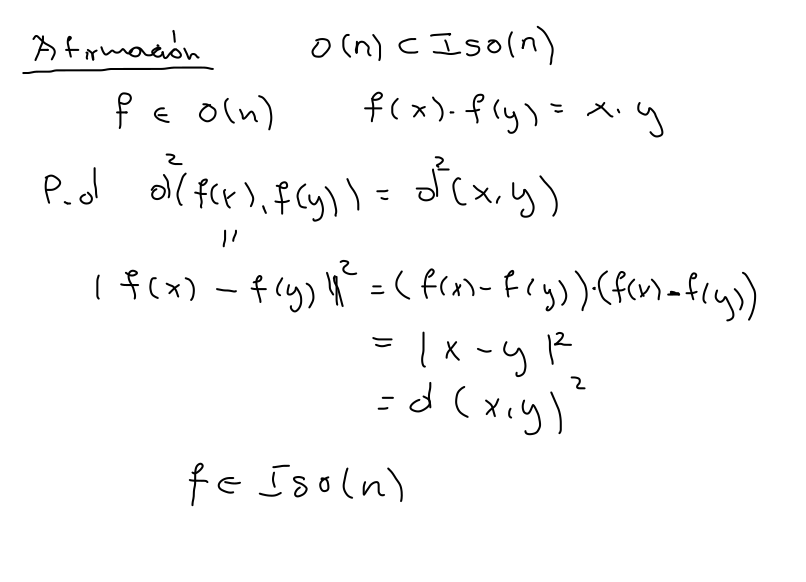 Afirmación O(n) ⊂ Iso(n)
f ∈ O(n) f(x)·f(y) = x·y
P.d d²(f(x), f(y)) = d²(x,y)
||
| f(x) - f(y) |² = (f(x) - f(y))·(f(x) - f(y))
= | x - y |²
= d (x,y)²
f ∈ Iso(n)